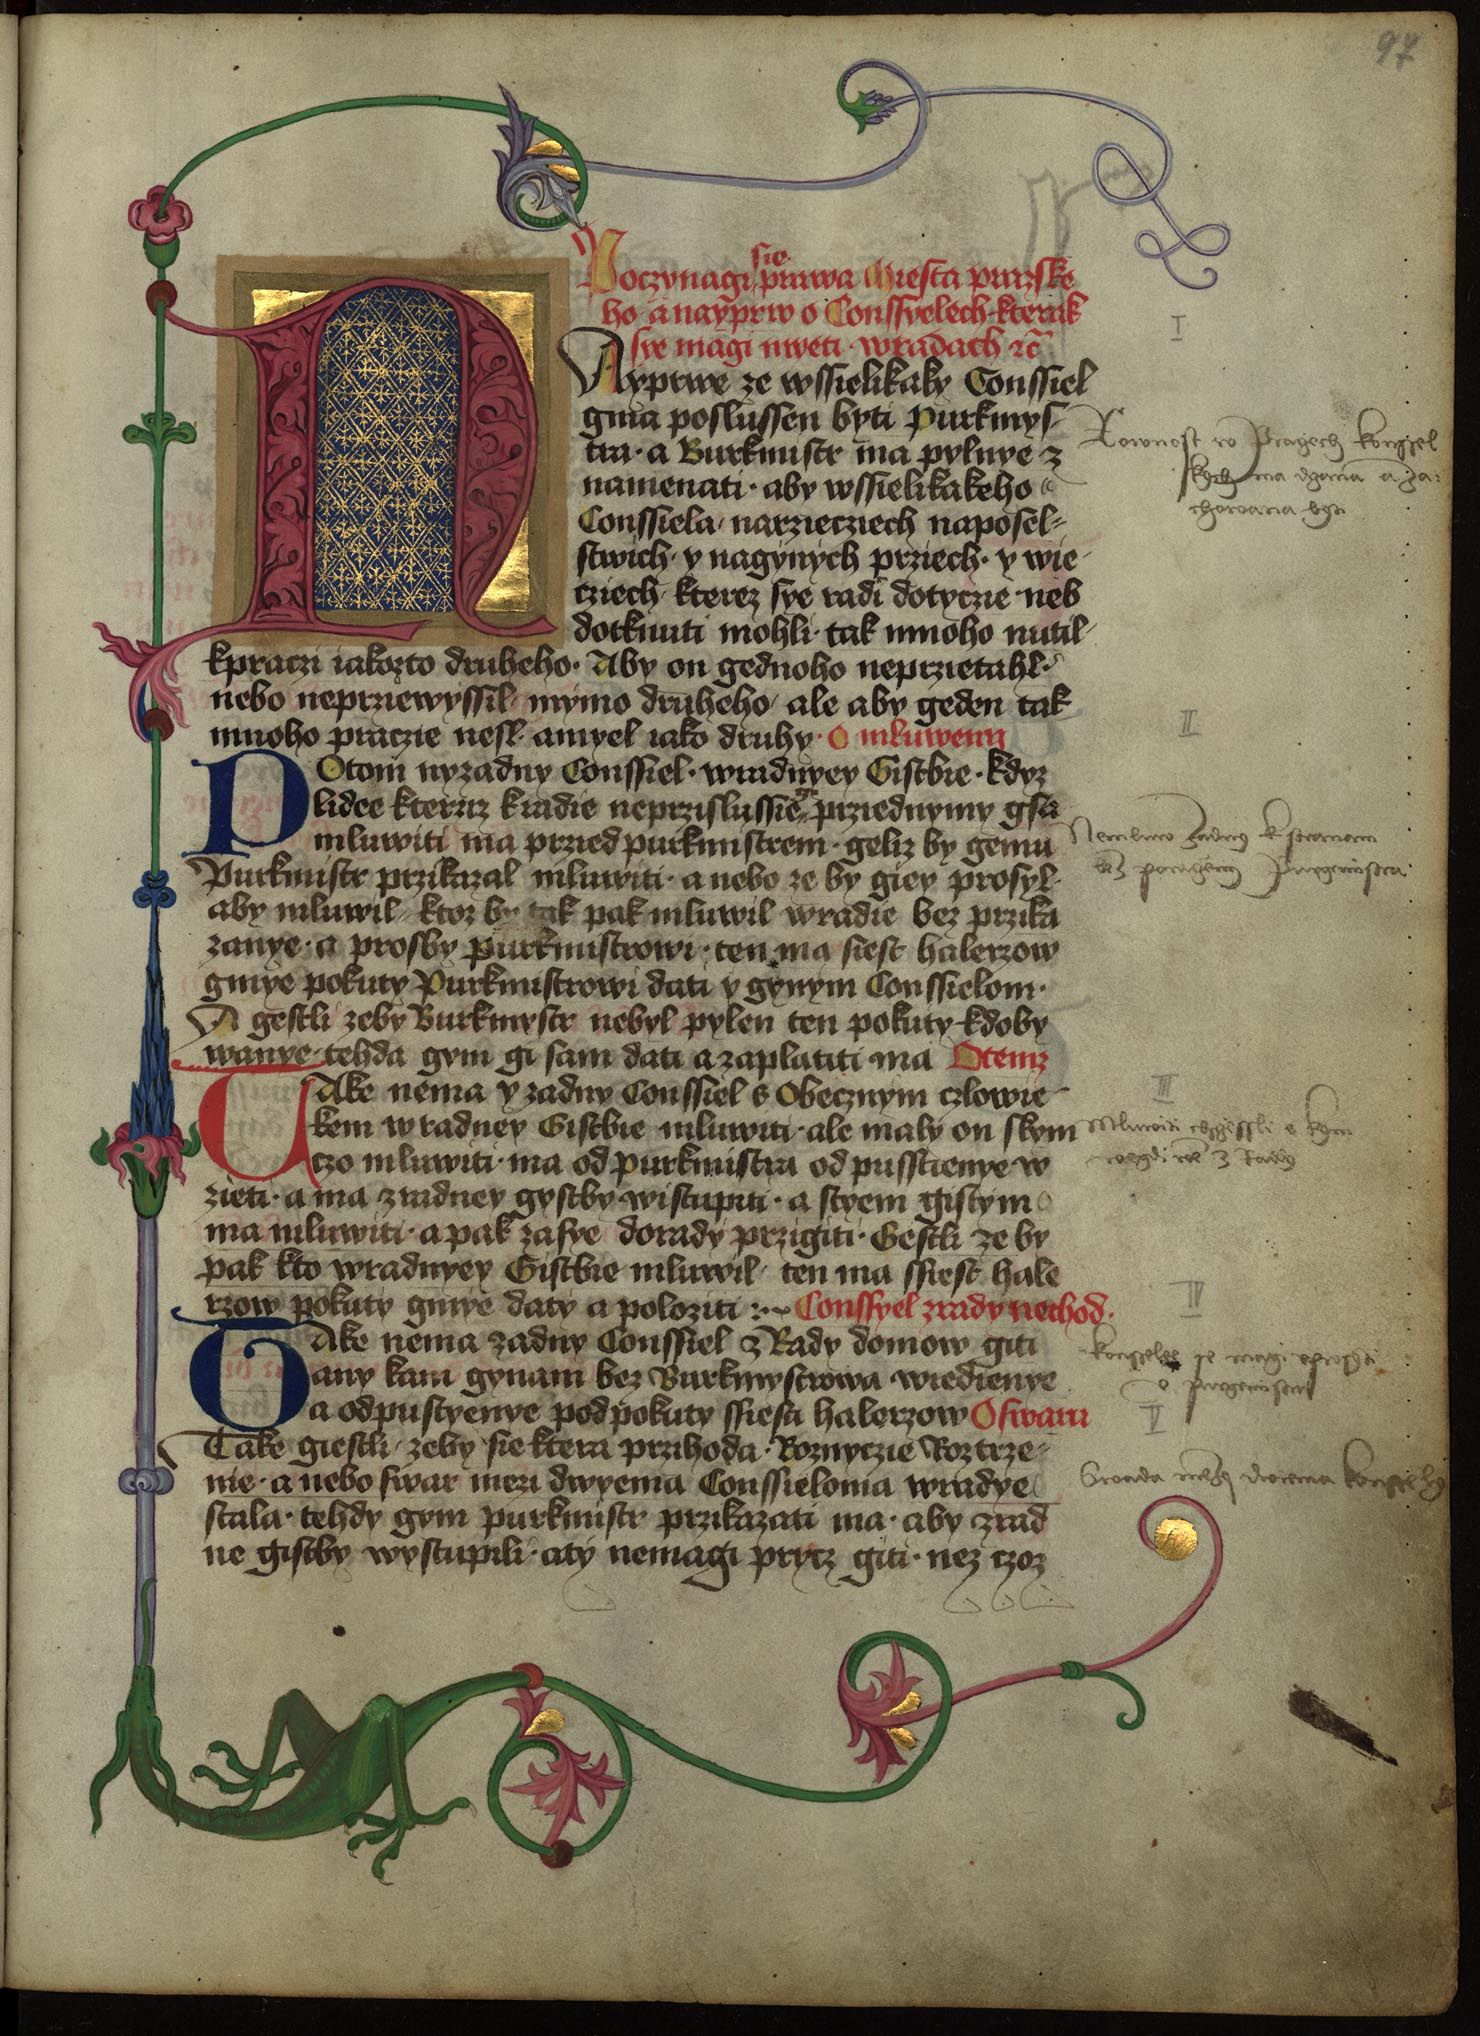 97
Poczynagi sie prawa Miesta prazske
ho a nayprw o Conssyelech kterak
sye magi mweti wradach
NAyprwe ze wssielikaky Conssiel
gma poslussen byti Purkmys
tra · a Burkmistr ma pylnye z
namenati · aby wssielikakeho
Conssiela narziecziech naposel-
stwich · y nagynych prziech · y wie
cziech kterez sye radi dotyczie neb
dotknuti mohli · tak mnoho nutil
kpraczi iakozto druheho · Aby on gednoho neprzietahl ·
nebo neprziewyssil mymo druheho ale aby geden tak
mnoho praczie nesl · amyel iako druhy · O mluwenu
POtom nyzadny Conssiel · wradnyey Gistbie · kdyz
lidee kteraz kradie neprzislussie prziednymy gsa
mluwiti ma przied purkmistrem · geliz by gemu
Purkmistr przikazal mluwiti · a nebo ze by giey prosyl
aby mluwil ktoz by tak pak mluwil wradie bez przika
zanye · a prosby purkmistrowi · ten ma siest halerzow
gmye pokuty Purkmistrowi dati y gynym Conssielom ·
A gestli zeby Burkmystr nebyl pylen ten pokuty kdoby
wanye tehda gym gi sam dati a zaplatiti ma Otemz
TAke nema yzadny Conssiel s Obecznym czlowie
kem wradney Gistbie mluwiti · ale maly on skym
czo mluwiti · ma od purkmistra od pusstienye w
zieti · a ma zradney gystby wistupiti · a styem gistym
ma mluwiti · a pak zasye dorady przigiti · Gestli ze by
pak kto wradnyey Gistbie mluwil ten ma ssiest hale
rzow pokuty gmye daty a poloziti : Conssyel zrady nechod ·
TAke nema zadny Conssiel z Rady domow giti
any kam gynam bez Burkmystrowa wiedienye
a odpustyenye podpokuty ssiesti halerzow Oswaru
Take giestli zeby sie ktera przihoda · Roznyczie Roztrze-
nie · a nebo swar mezi dwyema Conssieloma wradye
stala · tehdy gym purkmistr przikazati ma · aby zrad
ne gistby wystupili · aty nemagi prycz giti · nez czoz
I
Rownost w Pracech konssel
skych ma dgina a za:
chowana byti
II
III
IV
V
Swada mezy dwiema konssely